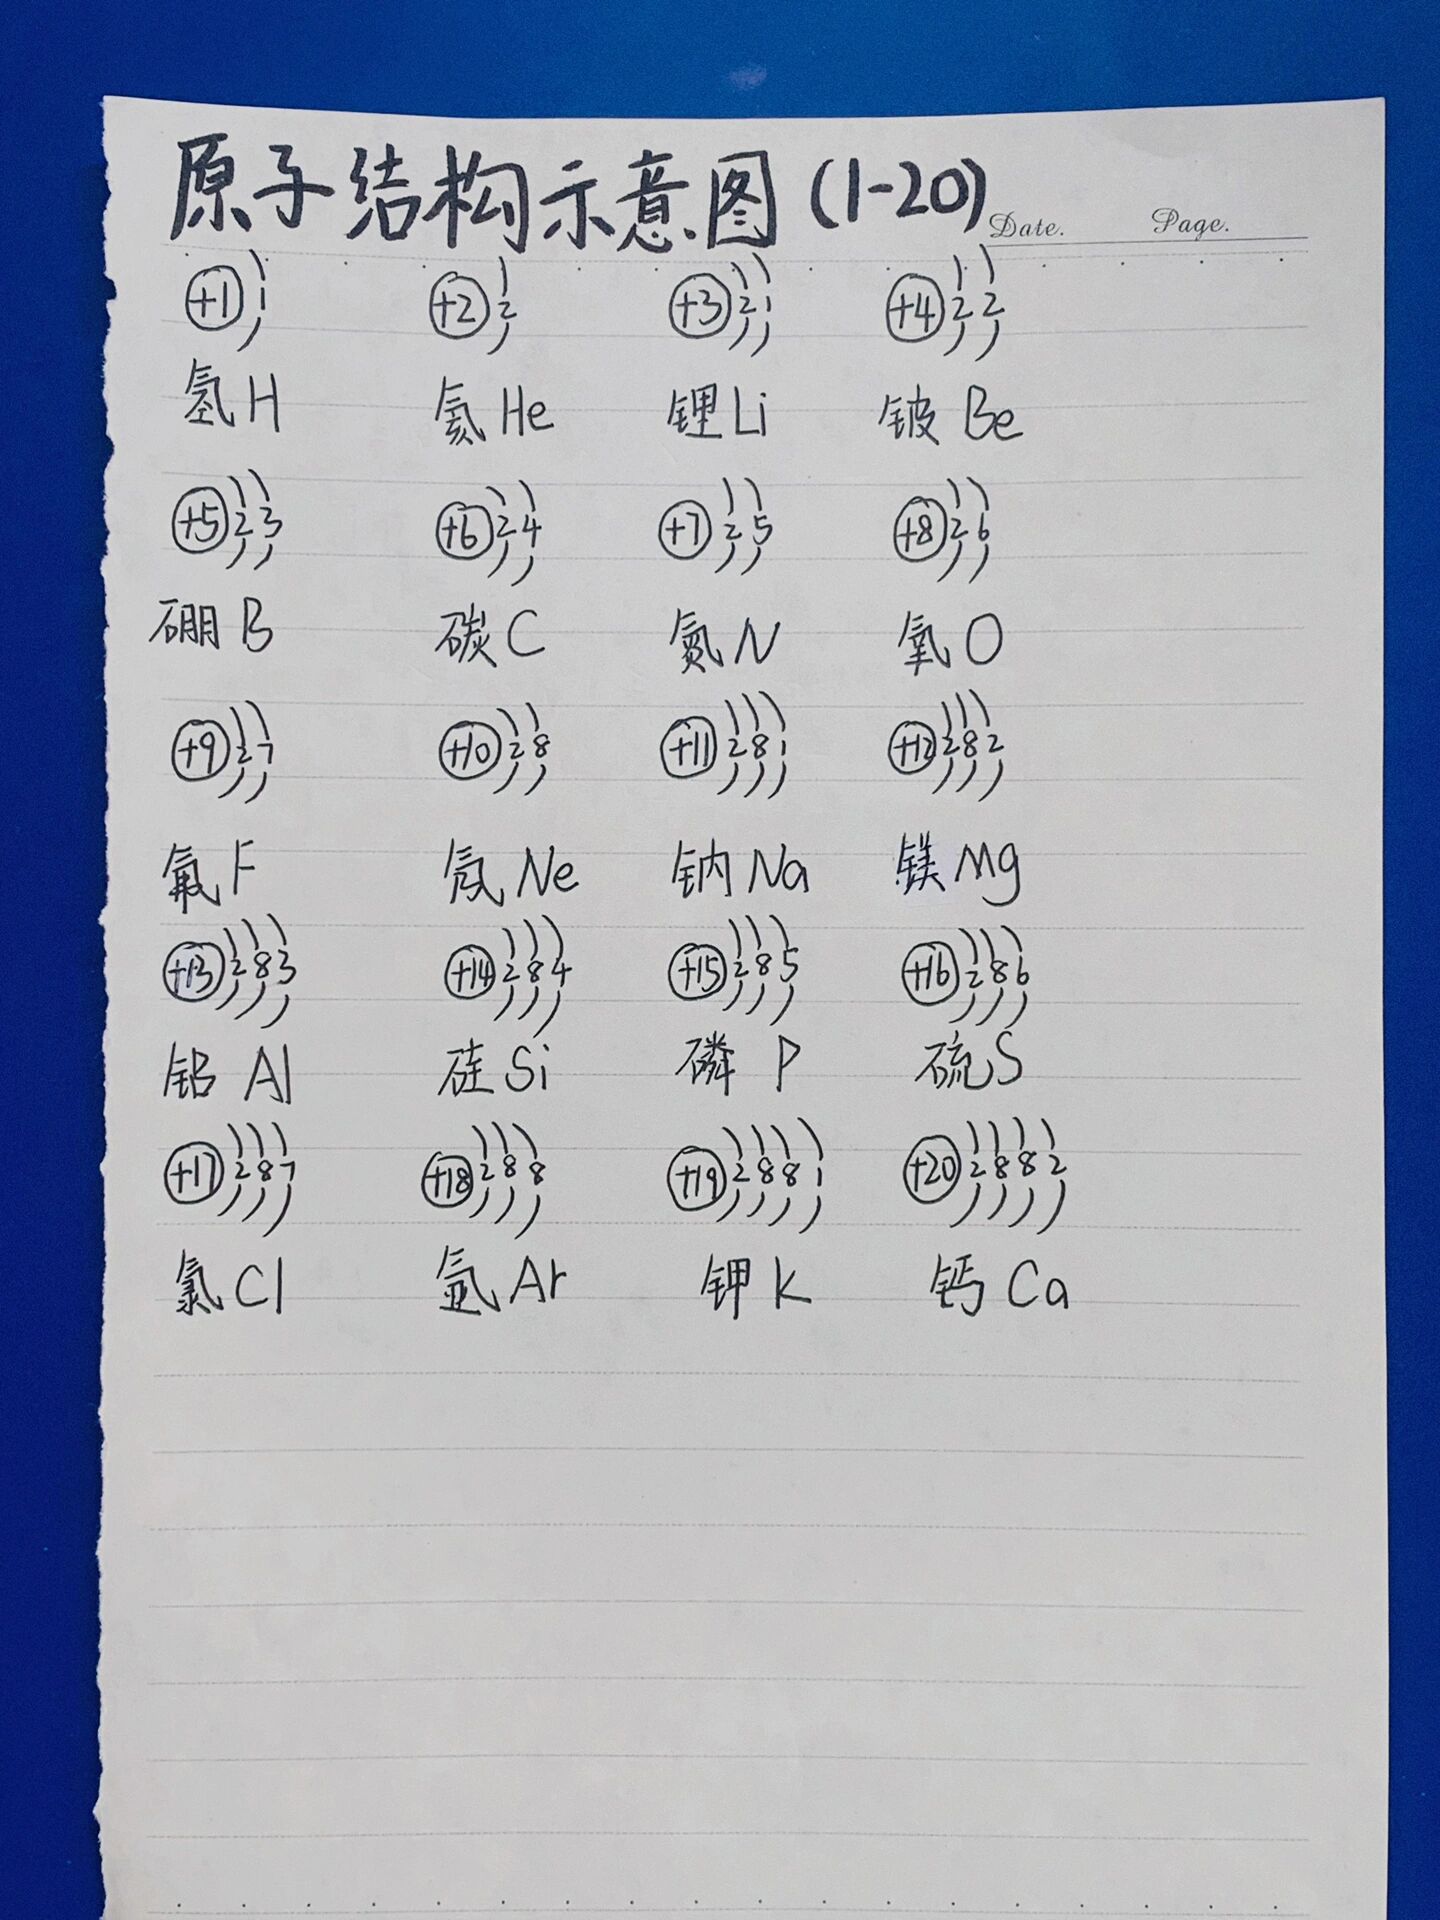 原子结构示意图(1-20)
Date. Page.
+1 1 +2 2 +3 2 1 +4 2 2
氢 H 氦 He 锂 Li 铍 Be
+5 2 3 +6 2 4 +7 2 5 +8 2 6
硼 B 碳 C 氮 N 氧 O
+9 2 7 +10 2 8 +11 2 8 1 +12 2 8 2
氟 F 氖 Ne 钠 Na 镁 Mg
+13 2 8 3 +14 2 8 4 +15 2 8 5 +16 2 8 6
铝 Al 硅 Si 磷 P 硫 S
+17 2 8 7 +18 2 8 8 +19 2 8 8 1 +20 2 8 8 2
氯 Cl 氩 Ar 钾 K 钙 Ca